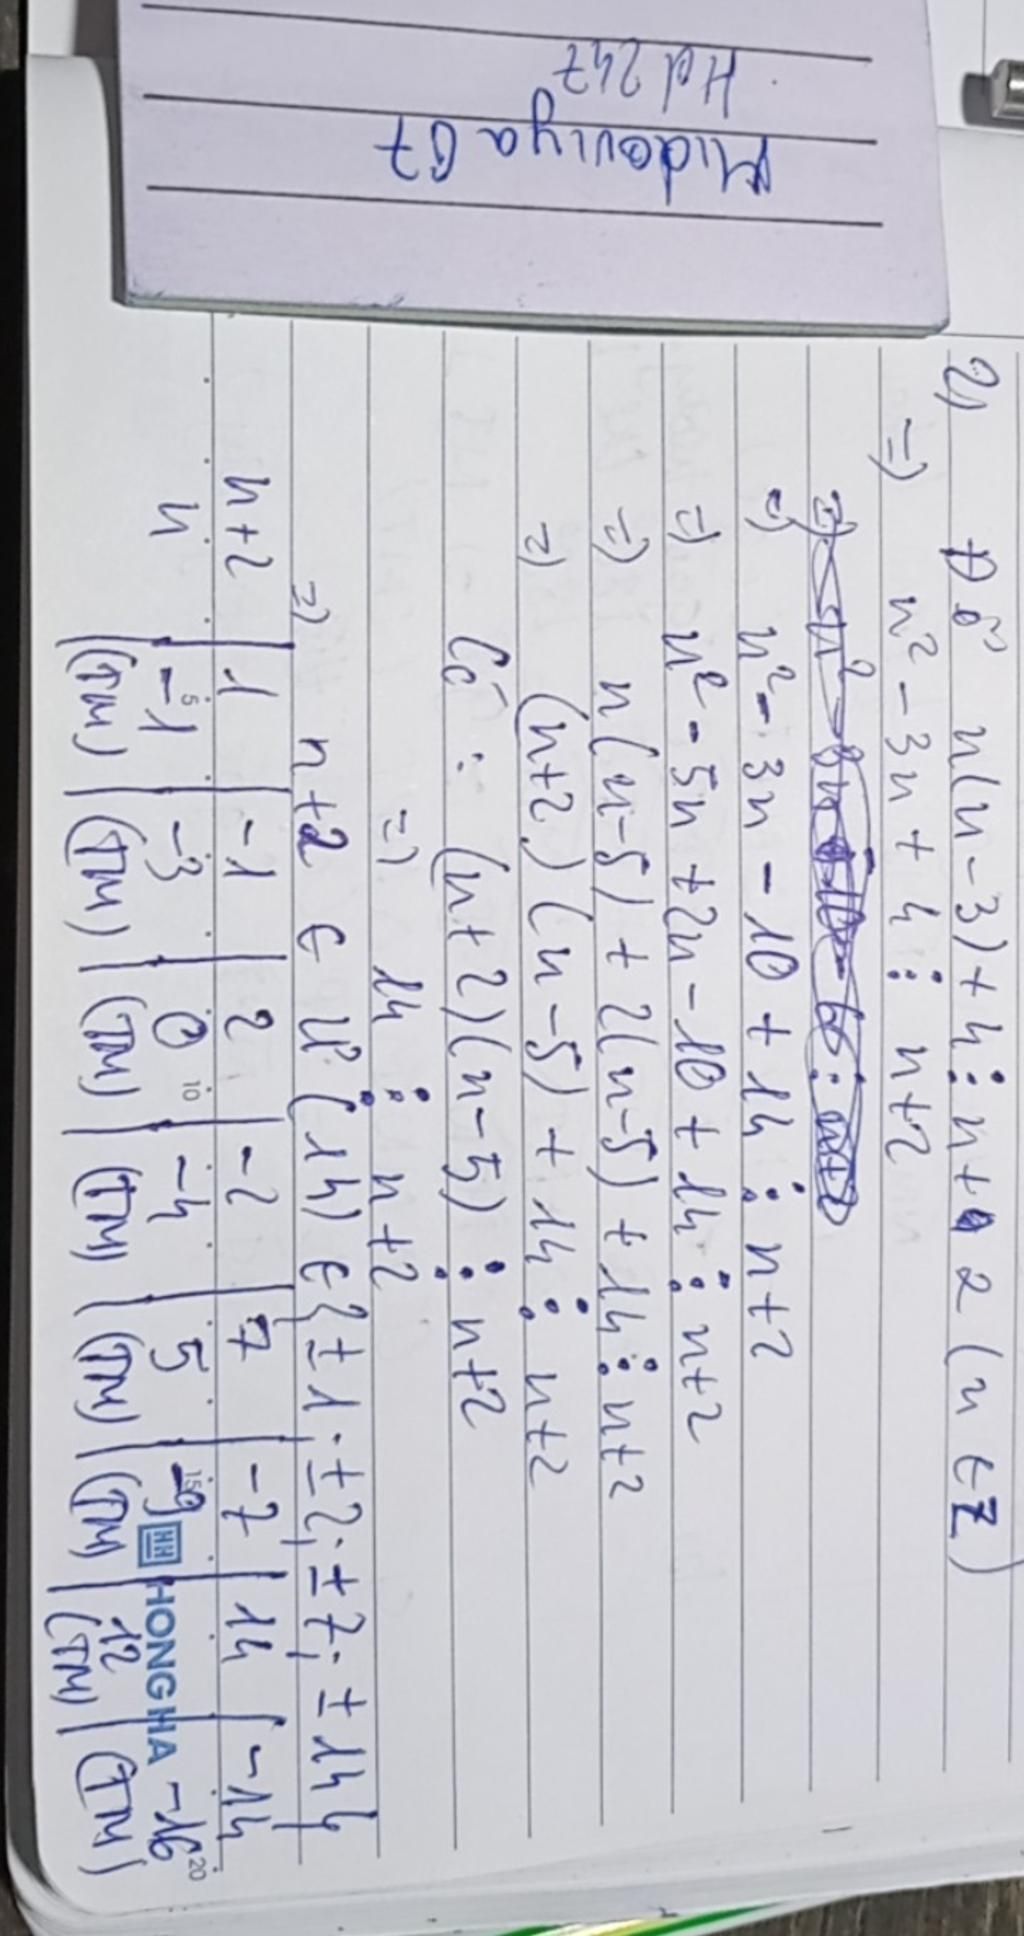 Midoriya 07
Hd 247
2) Để n(n-3)+4⋮n+2 (n∈Z)
=) n² - 3n + 4 ⋮ n+2
=) n² - 3n - 10 + 14 ⋮ n+2
=) n² - 5n + 2n - 10 + 14 ⋮ n+2
=) n(n-5) + 2(n-5) + 14 ⋮ n+2
=) (n+2)(n-5) + 14 ⋮ n+2
Có : (n+2)(n-5) ⋮ n+2
=) 14 ⋮ n+2
=) n+2 ∈ Ư(14) ∈ {±1; ±2; ±7; ±14}
n+2 | 1 | -1 | 2 | -2 | 7 | -7 | 14 | -14
n | -1 | -3 | 0 | -4 | 5 | -9 | 12 | -16
(TM) | (TM) | (TM) | (TM) | (TM) | (TM) | (TM) | (TM)
5 10 15 20
HH HONG HA